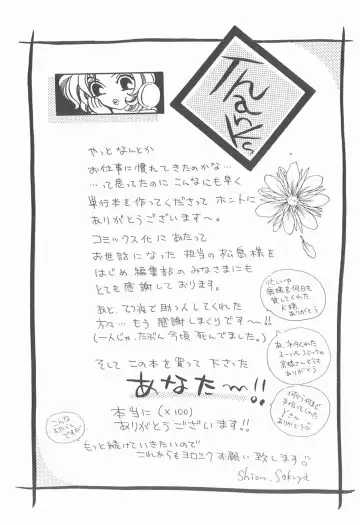 Thanks
やっと なんとか
お仕事に慣れてきたのかな…
…って思ってたのに こんなにも早く
単行本を作ってくださって ホントに
ありがとうございます〜。
コミックス化にあたって
お世話になった 担当の松島様を
はじめ 編集部のみなさまにも
とても感謝しております。
あと、てつ夜で助っ人してくれた
方々… もう 感謝しまくりです〜!!
(一人じゃ、たぶん今頃 死んでました。)
そして この本を買って 下さった
あなた〜!!
本当に(×100)
ありがとうございます!!
もっと続けていきたいので
これからもヨロシクお願い致します
Shion. Sakuya
忙しい中
何日も
貸してくれた
ありがとう
あ、
スーパー
ありがとう
何から何まで
手伝ってくれた
ありがとう
こんな
ですが